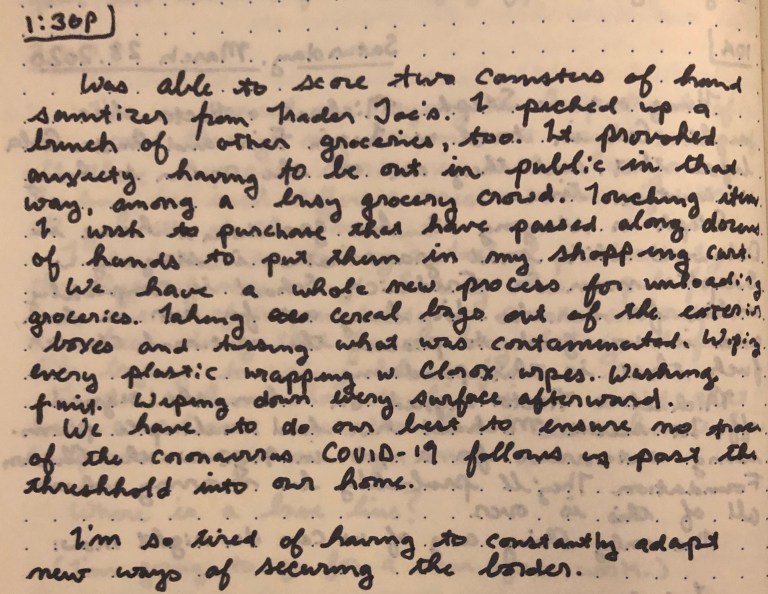 1:30p
Was able to score two cannisters of hand
sanitizer from Trader Joe's. I picked up a
bunch of other groceries, too. It provoked
anxiety having to be out in public in that
way, among a busy grocery crowd. Touching items
I wish to purchase that have passed along dozens
of hands to put them in my shopping cart.
We have a whole new process for unloading
groceries. Taking cereal bags out of the exterior
boxes and tossing what was contaminated. Wiping
every plastic wrapping w Clorox wipes. Washing
fruit. Wiping down every surface afterward.
We have to do our best to ensure no trace
of the coronavirus COVID-19 follows us past the
threshhold into our home.
I'm so tired of having to constantly adapt
new ways of securing the border.